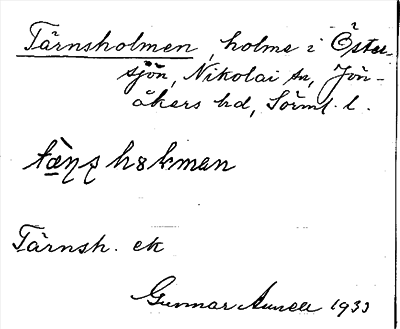 Tärnsholmen, holme i Öster-
sjön, Nikolai sn, Jön-
åkers hd, Sörml. l.
Tärnsh. ek
Gunnar 1933